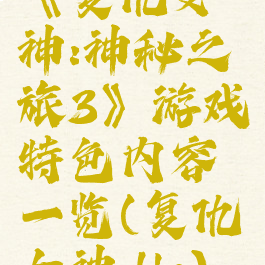 《复仇女
神:神秘之
旅3》游戏
特色内容
一览(复仇